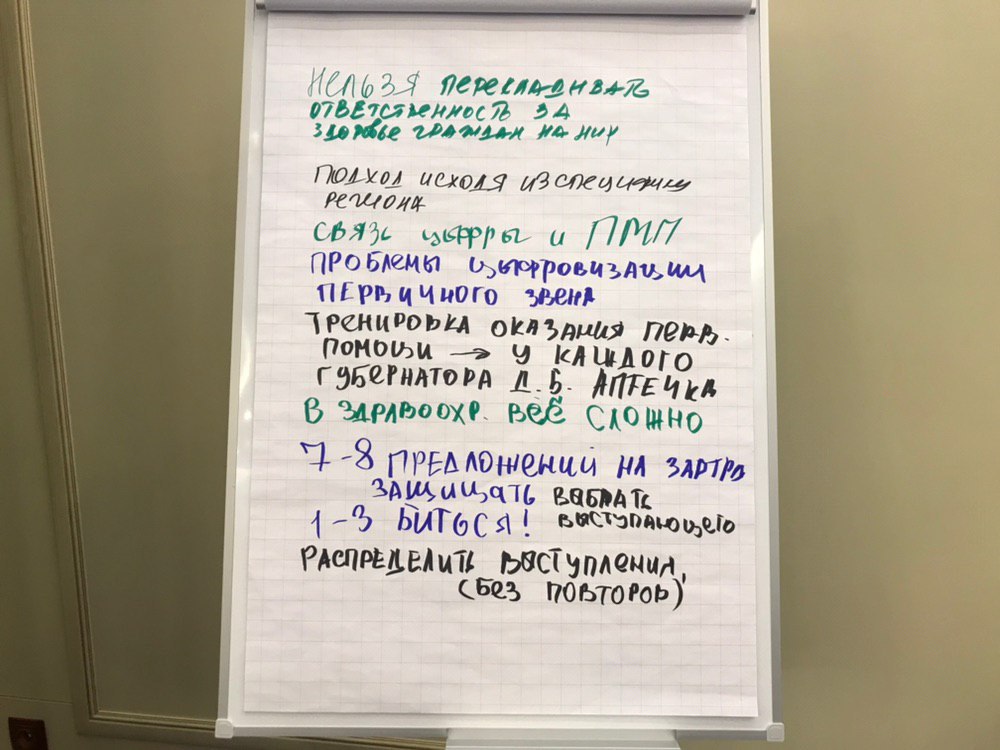 НЕЛЬЗЯ ПЕРЕКЛАДЫВАТЬ
ОТВЕТСТВЕННОСТЬ ЗА
ЗДОРОВЬЕ ГРАЖДАН НА НИХ
ПОДХОД ИСХОДЯ ИЗ СПЕЦИФИКИ
РЕГИОНА
СВЯЗЬ ЦИФРЫ И ПМП
ПРОБЛЕМЫ ЦИФРОВИЗАЦИИ
ПЕРВИЧНОГО ЗВЕНА
ТРЕНИРОВКА ОКАЗАНИЯ ПЕРВ.
ПОМОЩИ → У КАЖДОГО
ГУБЕРНАТОРА Д.Б. АПТЕЧКА
В ЗДРАВООХР. ВСЁ СЛОЖНО
7-8 ПРЕДЛОЖЕНИЙ НА ЗАВТРА
ЗАЩИЩАТЬ ВЫБРАТЬ
1-3 БИТЬСЯ! ВЫСТУПАЮЩЕГО
РАСПРЕДЕЛИТЬ ВЫСТУПЛЕНИЯ,
(БЕЗ ПОВТОРОВ)